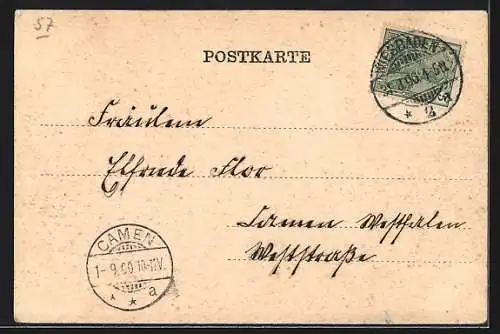 57
POSTKARTE
WIESBADEN
* 2
Fräulein
Elfriede Flor
Camen Westfalen
Weststraße
CAMEN
1-9.00.10-11V.
* * a